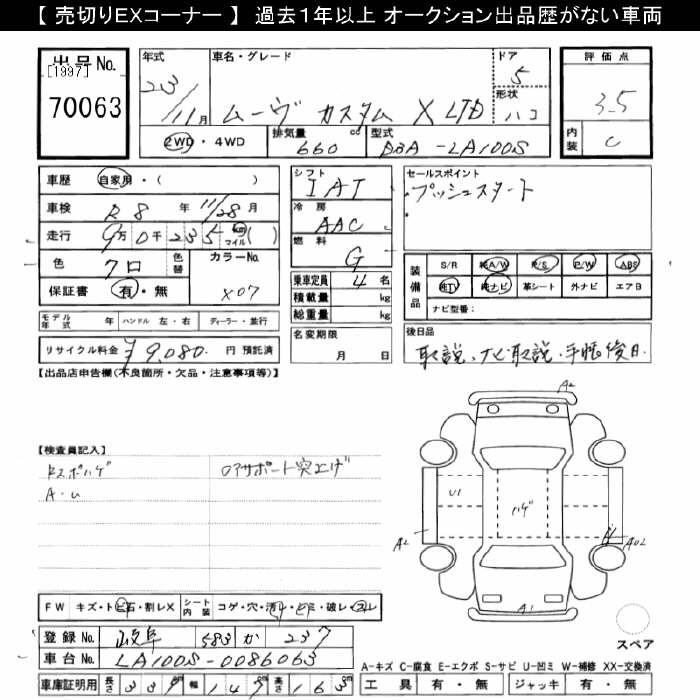 【 売切りEXコーナー 】 過去1年以上 オークション出品歴がない車両
出品No.
[1997]
70063
年式
23
/11月
車名・グレード
ムーヴ カスタム X LTD
ドア
5
形状
ハコ
2WD・4WD
排気量
660 cc
型式
DBA-LA100S
評価点
3.5
内装
C
車歴 自家用・( )
車検 R8 年 11/28 月
走行 9万0千235 km マイル ( )
色 クロ 色替 カラーNo.
保証書 有・無 X07
モデル年式 年 ハンドル 左・右 ディーラー・並行
リサイクル料金 ¥9,080 円 預託済
シフト
IAT
冷房
AAC
燃料
G
乗車定員 4 名
積載量 kg
総重量 kg
名変期限
月 日
セールスポイント
・プッシュスタート
装備品
S/R 純A/W P/S P/W ABS
純TV 純ナビ 革シート 外ナビ エアB
ナビ型番:
後日品
取説、ナビ取説、手帳後日
【出品店申告欄(不良箇所・欠品・注意事項等)】
【検査員記入】
ドアサポート突上げ
A・U
A2
U1
ハゲ
A2
A1
スペア
FW キズ・トビ石・割レX シート内装 コゲ・穴・汚レ・ヒビ・破レ・スレ
登録No. 岐阜 583 か 237
車台No. LA100S-0086063
車庫証明用 長さ 339 幅 147 高さ 163
A-キズ C-腐食 E-エクボ S-サビ U-凹ミ W-補修 XX-交換済
工具 有・無 ジャッキ 有・無